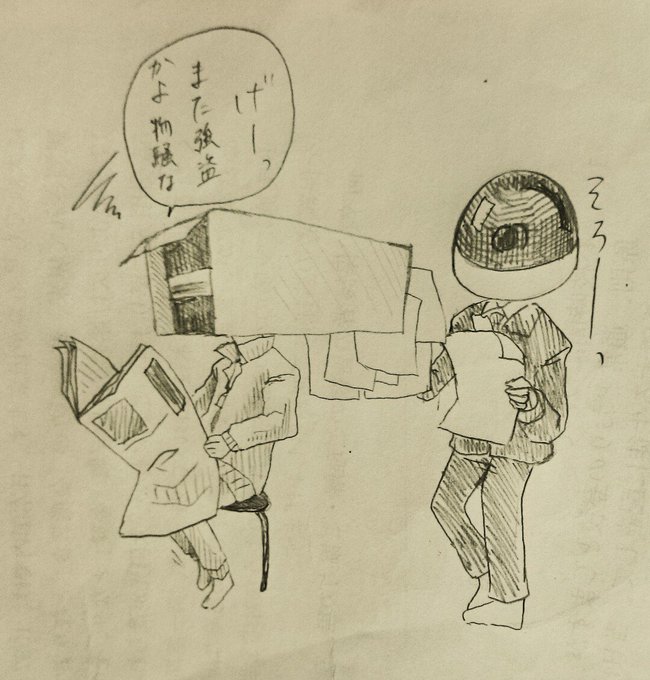 げーっ
また強盗
かよ物騒な
そろーっ